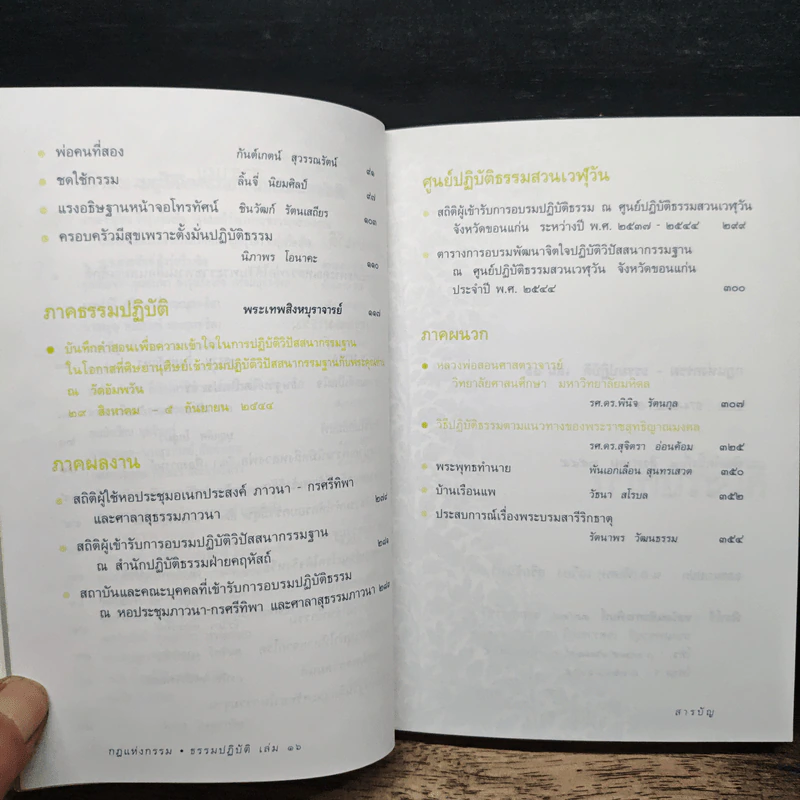 พ่อคนที่สอง กันต์เกตน์ สุวรรณรัตน์ ๙๑
ชดใช้กรรม ลิ้นจี่ นิยมศิลป์ ๙๗
แรงอธิษฐานหน้าจอโทรทัศน์ ชินวัฒก์ รัตนเสถียร ๑๐๓
ครอบครัวมีสุขเพราะตั้งมั่นปฏิบัติธรรม
นิภาพร โอนาคะ ๑๑๐
ภาคธรรมปฏิบัติ พระเทพสิงหบุราจารย์ ๑๑๗
บันทึกคำสอนเพื่อความเข้าใจในการปฏิบัติวิปัสสนากรรมฐาน
ในโอกาสที่ศิษยานุศิษย์เข้าร่วมปฏิบัติวิปัสสนากรรมฐานกับพระคุณท่าน
ณ วัดอัมพวัน
๒๙ สิงหาคม - ๕ กันยายน ๒๕๔๔
ภาคผลงาน
สถิติผู้ใช้หอประชุมอเนกประสงค์ ภาวนา - กรศรีทิพา
และศาลาสุธรรมภาวนา
สถิติผู้เข้ารับการอบรมปฏิบัติวิปัสสนากรรมฐาน
ณ สำนักปฏิบัติธรรมฝ่ายคฤหัสถ์
สถาบันและคณะบุคคลที่เข้ารับการอบรมปฏิบัติธรรม
ณ หอประชุมภาวนา-กรศรีทิพา และศาลาสุธรรมภาวนา
กฎแห่งกรรม • ธรรมปฏิบัติ เล่ม ๑๖
ศูนย์ปฏิบัติธรรมสวนเวฬุวัน
สถิติผู้เข้ารับการอบรมปฏิบัติธรรม ณ ศูนย์ปฏิบัติธรรมสวนเวฬุวัน
จังหวัดขอนแก่น ระหว่างปี พ.ศ. ๒๕๓๗ - ๒๕๔๔ ๒๙๙
ตารางการอบรมพัฒนาจิตใจปฏิบัติวิปัสสนากรรมฐาน
ณ ศูนย์ปฏิบัติธรรมสวนเวฬุวัน จังหวัดขอนแก่น
ประจำปี พ.ศ. ๒๕๔๔ ๓๐๐
ภาคผนวก
หลวงพ่อสอนศาสตราจารย์
วิทยาลัยศาสนศึกษา มหาวิทยาลัยมหิดล
รศ.ดร.พินิจ รัตนกุล ๓๐๗
วิธีปฏิบัติธรรมตามแนวทางของพระราชสุทธิญาณมงคล
รศ.ดร.สุจิตรา อ่อนค้อม ๓๒๕
พระพุทธทำนาย พันเอกเลื่อน สุนทรเสวต ๓๕๐
บ้านเรือนแพ วัธนา สโรบล ๓๕๒
ประสบการณ์เรื่องพระบรมสารีริกธาตุ
รัตนาพร วัฒนธรรม ๓๕๔
สารบัญ